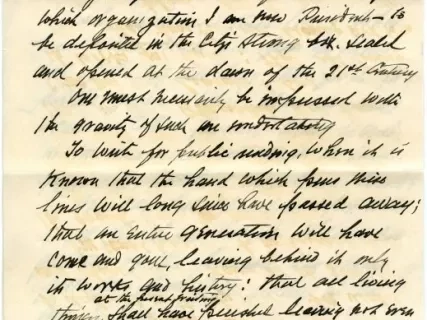 which organization I am now President — to
be deposited in the City's Strong box. Sealed
and opened at the dawn of the 21st Century
One must necessarily be impressed with
the gravity of such an undertaking
To write for public reading, when it is
Known that the hand which pens these
lines will long since have passed away;
that an entire generation will have
come and gone, leaving behind it only
its works and history: that all living
at the present
things, shall have perished leaving not even